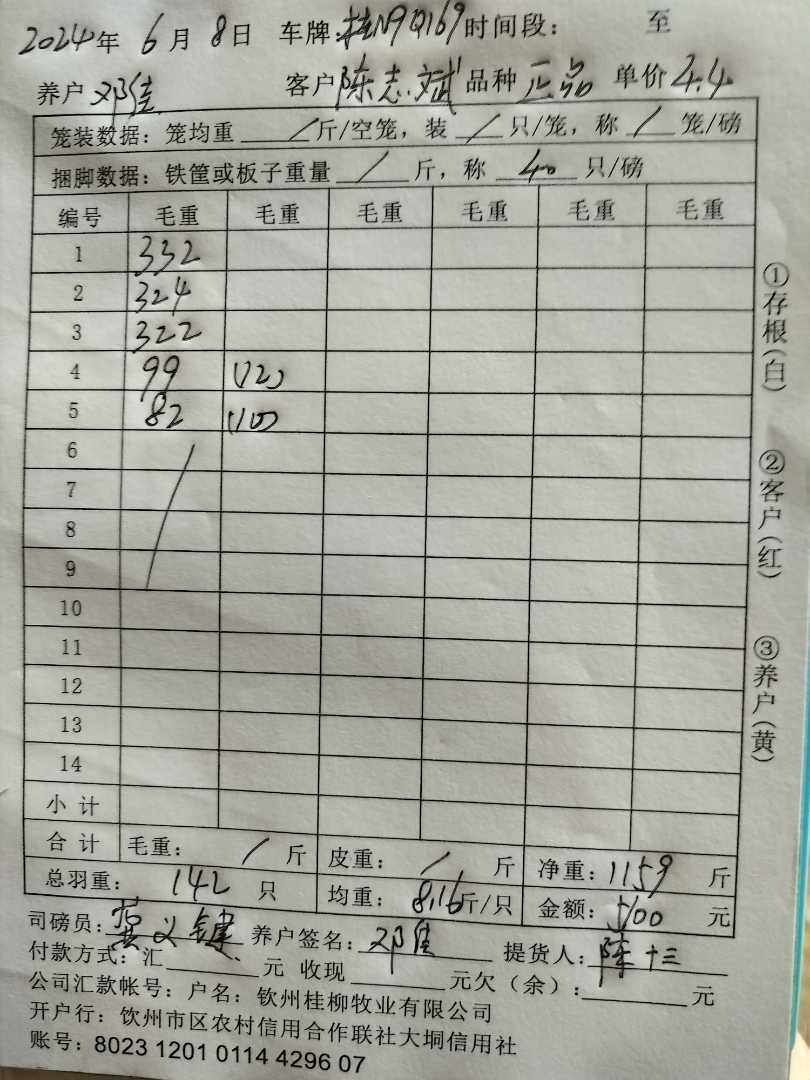 2024年 6月 8日 车牌:桂N9Q169时间段: 至
养户 邓佳 客户 陈志斌 品种 正品 单价 4.4
笼装数据:笼均重 / 斤/空笼,装 / 只/笼,称 / 笼/磅
捆脚数据:铁筐或板子重量 / 斤,称 40 只/磅
编号 毛重 毛重 毛重 毛重 毛重 毛重
1 332
2 324
3 322
4 99 (12)
5 82 (10)
6
7
8
9
10
11
12
13
14
小计
合计 毛重: / 斤 皮重: / 斤 净重:1159 斤
总羽重: 142 只 均重: 8.16斤/只 金额:5100 元
司磅员:龚义键 养户签名:邓佳 提货人:陈十三
付款方式:汇 元 收现 元欠(余): 元
公司汇款帐号:户名:钦州桂柳牧业有限公司
开户行:饮州市区农村信用合作联社大垌信用社
账号:8023 1201 0114 4296 07
①存根(白)
②客户(红)
③养户(黄)